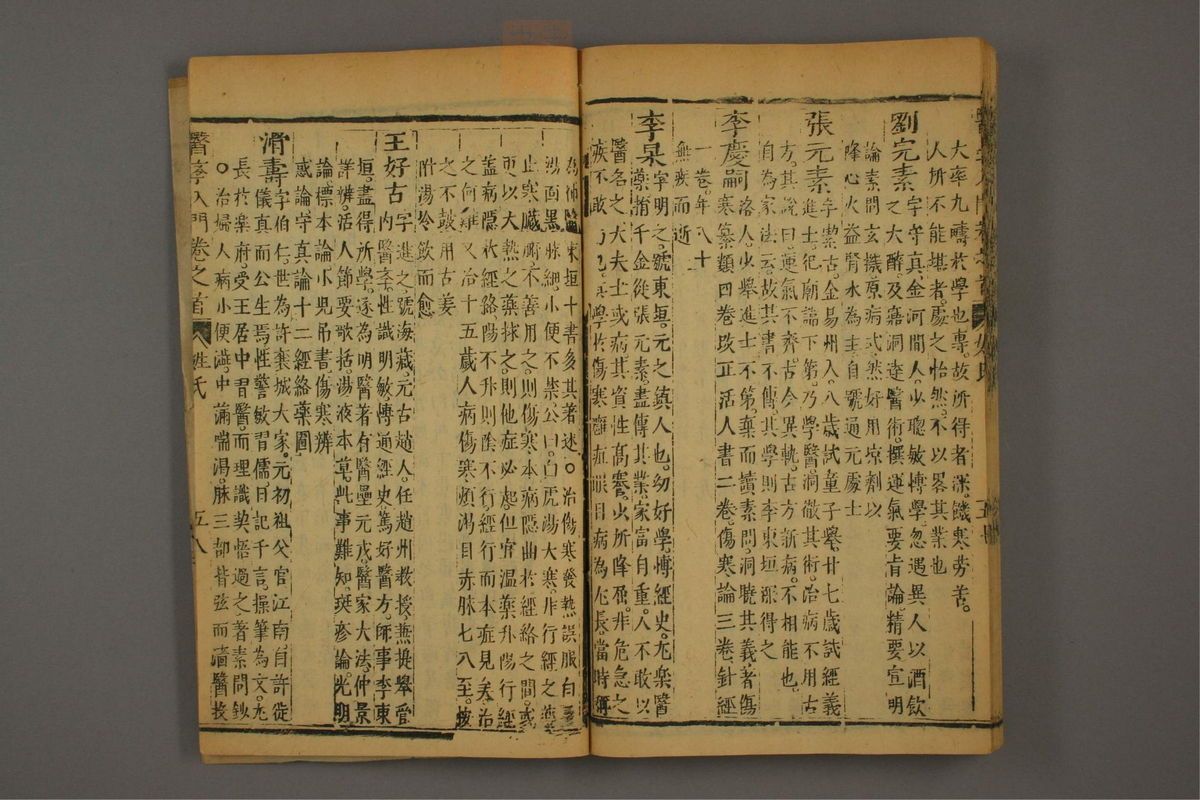 大率九疇於學也專故所得者深饑寒勞苦。
人所不能堪者處之怡然不以畧其業也
劉完素字守真金河間人少聰敏博學忽遇異人以酒飲
之大醉及寤洞達醫術撰運氣要旨論精要宣明
論素問玄機原病式然好用涼劑以
降心火益腎水為主自號通元處士
張元素字潔古金易州人八歲試童子舉廿七歲試經義
進士犯廟諱下第乃學醫洞徹其術治病不用古
方其說曰運氣不齊古今異軌古方新病不相能也
自為家法云故其書不傳其學則李東垣深得之
李慶嗣洛人少舉進士不第棄而讀素問洞曉其義著傷
寒纂類四卷攷正活人書二卷傷寒論三卷針經
一卷年八十
無疾而逝
李杲字明之號東垣元之鎮人也幼好學博經史尤樂醫
藥捐千金從張元素盡傳其業家富自重人不敢以
醫名之大夫士或病其資性高謇少所降屈非危急之
疾不敢謁也其學於傷寒癰疽眼目病為尤長當時稱
為神醫東垣十書多其著述○治傷寒發熱誤服白虎
湯面黑脉細小便不禁公曰白虎湯大寒非行經之藥
止寒臟腑不善用之則傷寒本病隱曲於經絡之間或
更以大熱之藥捄之則他症必起但宜溫藥升陽行經
蓋病隱於經絡陽不升則陰不行經行而本症見矣治
之何難又治十五歲人病傷寒煩渴目赤脉七八至按
之不鼓用古姜
附湯冷飲而愈
王好古字進之號海藏元古趙人任趙州教授兼提舉管
內醫學性識明敏博通經史篤好醫方師事李東
垣盡得所學遂為明醫著有醫壘元戎醫家大法仲景
詳辨活人節要歌括湯液本草此事難知斑疹論光明
論標本論小兒吊書傷寒辨
惑論守真論十二經絡藥圖
滑壽字伯仁世為許襄城大家元初祖父官江南自許徙
儀真而公生焉性警敏習儒日記千言操筆為文尤
長於樂府受王居中習醫而理識契悟過之著素問鈔
○治婦人病小便澁中滿喘渴脉三部皆弦而濇醫投
醫學入門卷之首 姓氏 五八